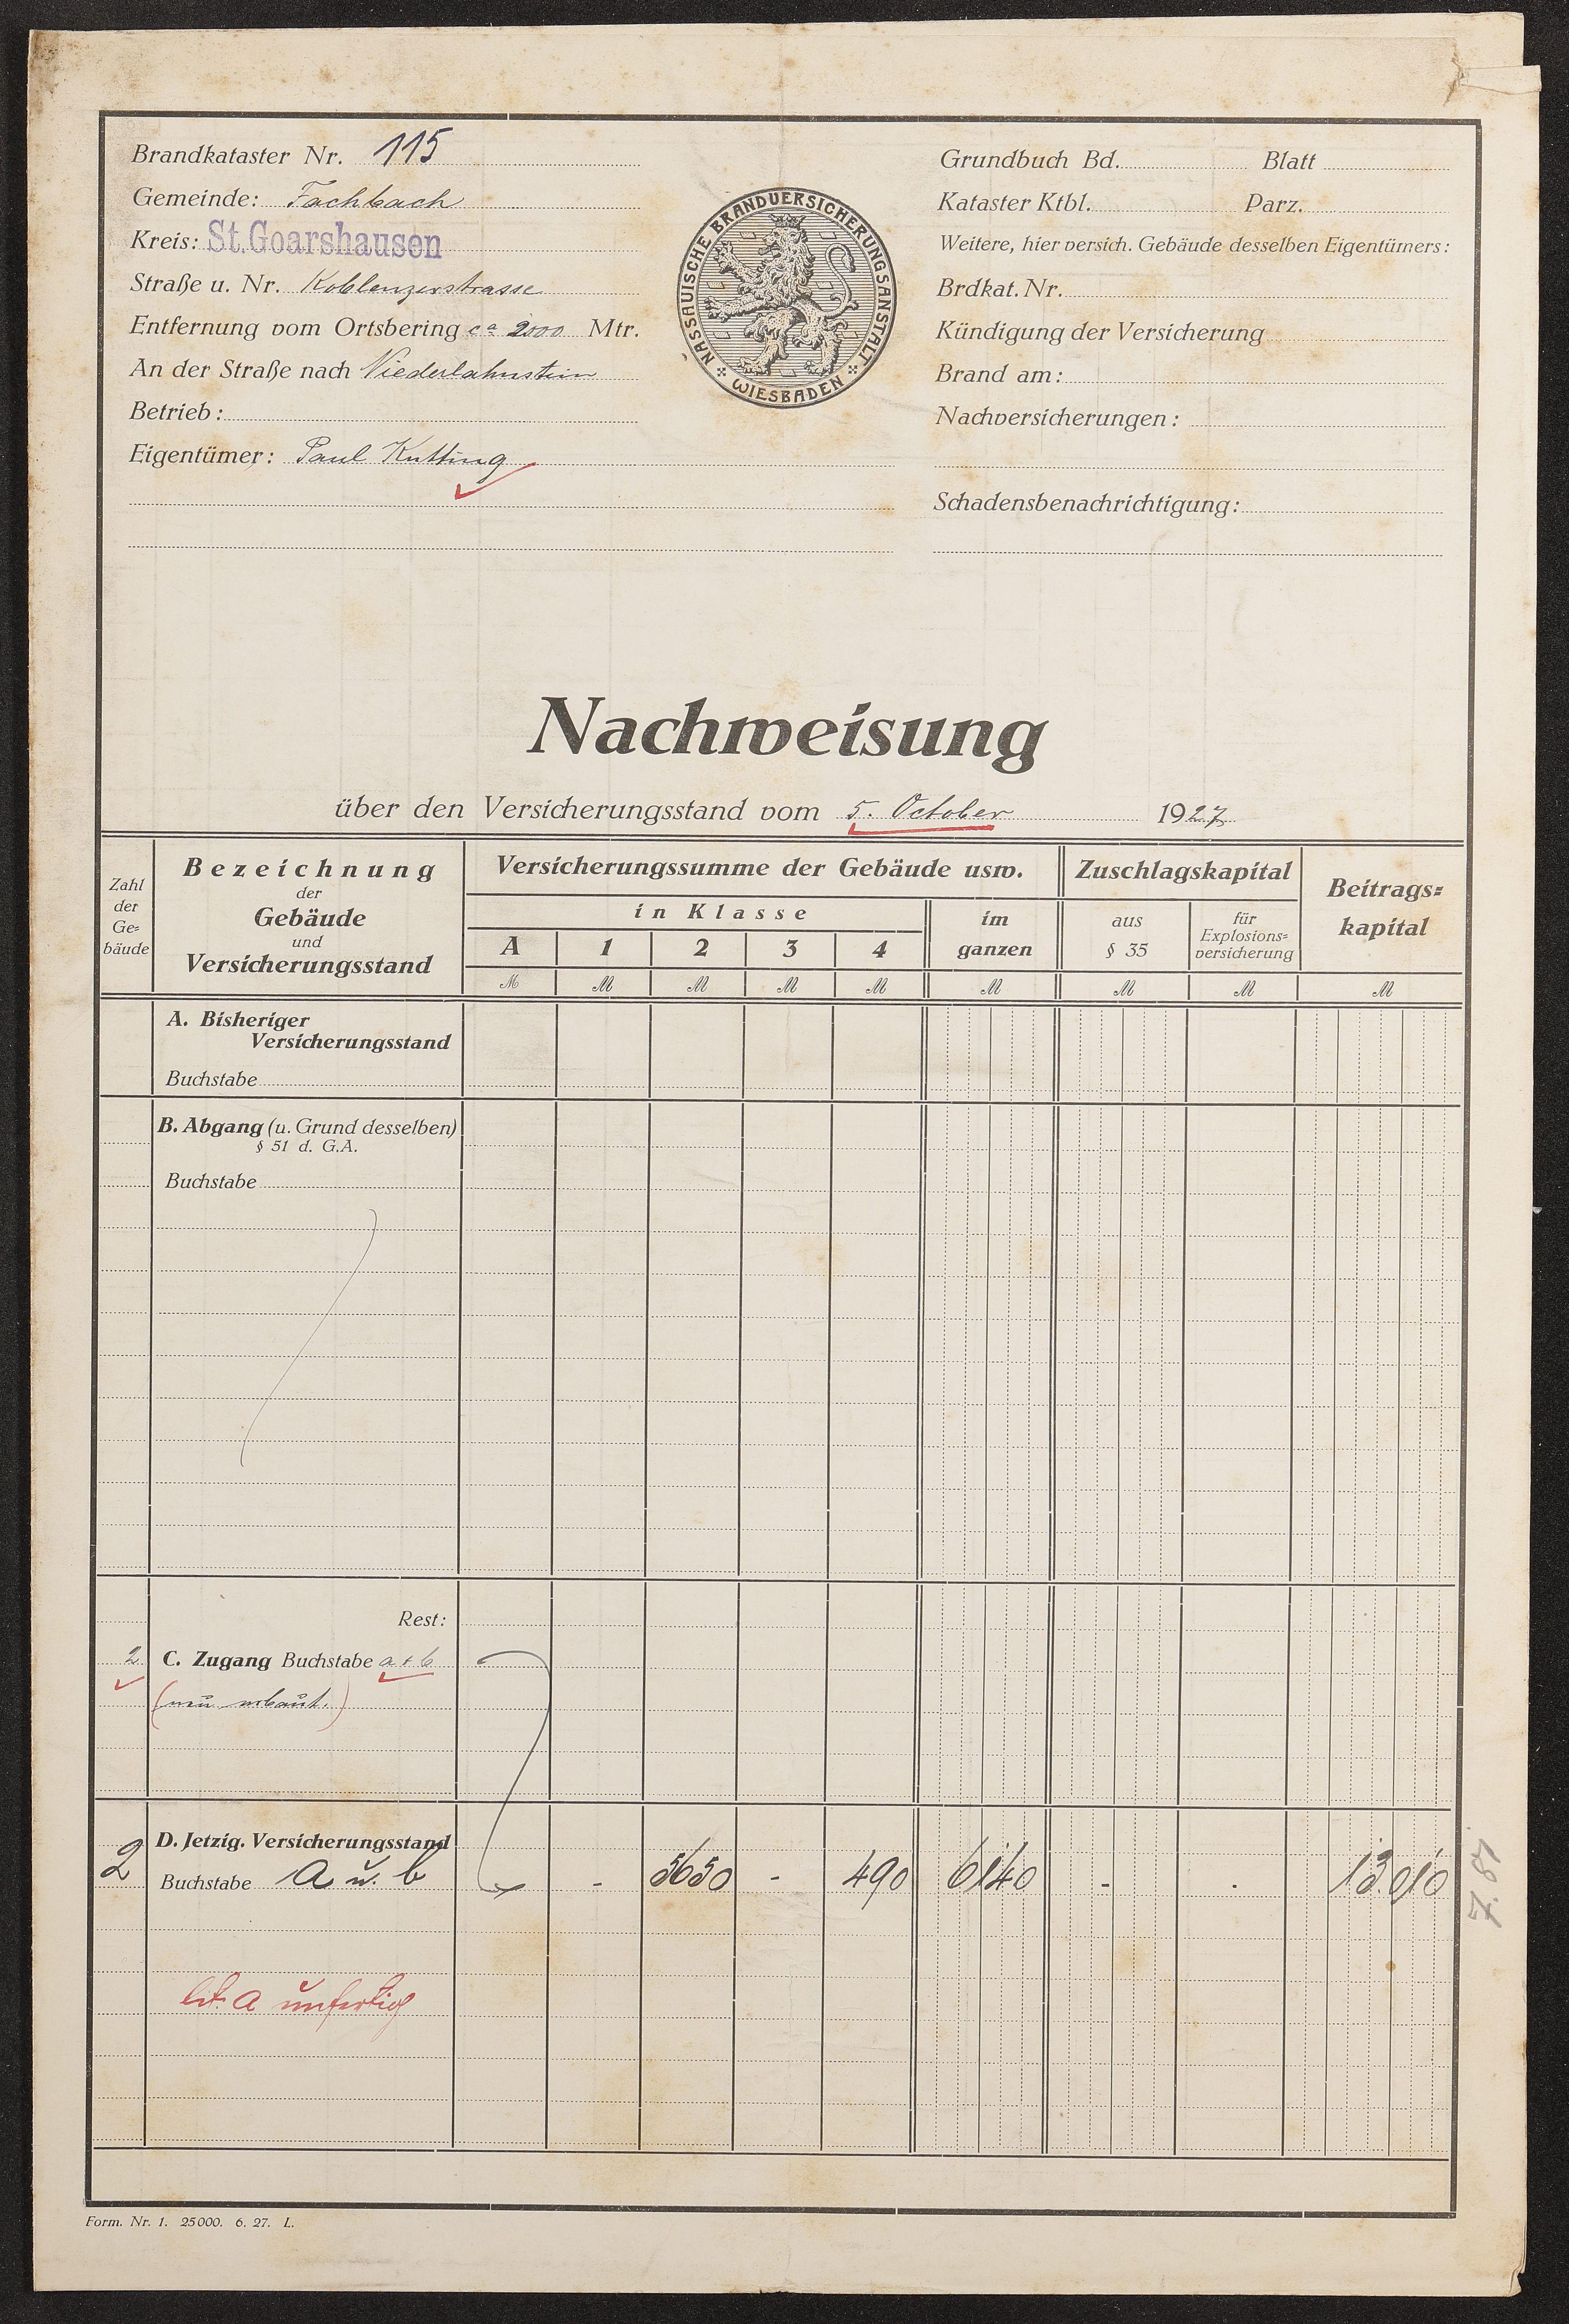 Brandkataster Nr. 115
Gemeinde: Fachbach
Kreis: St. Goarshausen
Straße u. Nr. Koblenzerstrasse
Entfernung vom Ortsbering ca 2000 Mtr.
An der Straße nach Niederlahnstein
Betrieb:
Eigentümer: Paul Kutting
NASSAUISCHE BRANDVERSICHERUNGSANSTALT
WIESBADEN
Grundbuch Bd. Blatt
Kataster Ktbl. Parz.
Weitere, hier versich. Gebäude desselben Eigentümers:
Brdkat. Nr.
Kündigung der Versicherung
Brand am:
Nachversicherungen:
Schadensbenachrichtigung:
Nachweisung
über den Versicherungsstand vom 5. October 1927
Zahl der Ge=bäude
Bezeichnung
der
Gebäude
und
Versicherungsstand
Versicherungssumme der Gebäude usw.
in Klasse
A 1 2 3 4
im ganzen
Zuschlagskapital
aus § 35
für Explosions=versicherung
Beitrags=kapital
M M M M M M M M M
A. Bisheriger
Versicherungsstand
Buchstabe
B. Abgang (u. Grund desselben)
§ 51 d. G.A.
Buchstabe
Rest:
2 C. Zugang Buchstabe a + b
(neu erbaut.)
D. Jetzig. Versicherungsstand
2 Buchstabe a u. b - 5650 - 490 6140 - . 13.010
7.81
lit. a unfertig
Form. Nr. 1. 25000. 6. 27. L.